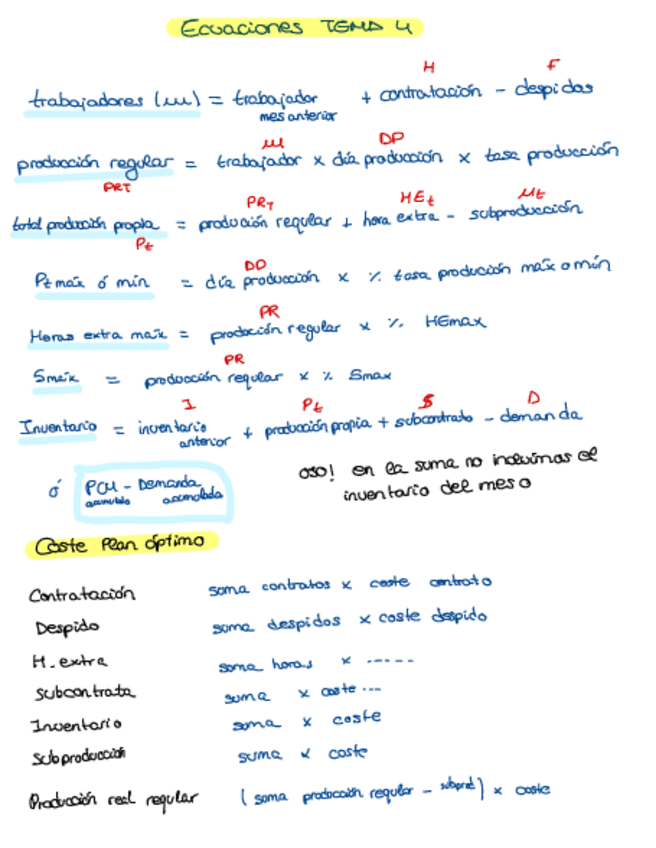 Ecuaciones TEMA 4
H F
trabajadores (M) = trabajador + contratación - despidos
mes anterior
M DP
producción regular = trabajador x día producción x tasa producción
PRT
PRT HEt Mt
total producción propia = produción regular + hora extra - subproducción
Pt
DP
Pt maíx ó mín = día producción x % tasa produción maíx o mín
PR
Horas extra maíx = producción regular x % HEmax
PR
Smaíx = producción regular x % Smax
I Pt S D
Inventario = inventario + producción propia + subcontrato - demanda
anterior
ó PCM - Demanda
acumulado acumulada
oso! en la suma no incluimos el
inventario del mes 0
Coste Plan óptimo
Contratación suma contratos x coste contrato
Despido suma despidos x coste despido
H. extra suma horas x -----
subcontrata suma x coste ...
Inventario suma x coste
Subproducción suma x coste
Producción real regular (suma producción regular - subprod) x coste